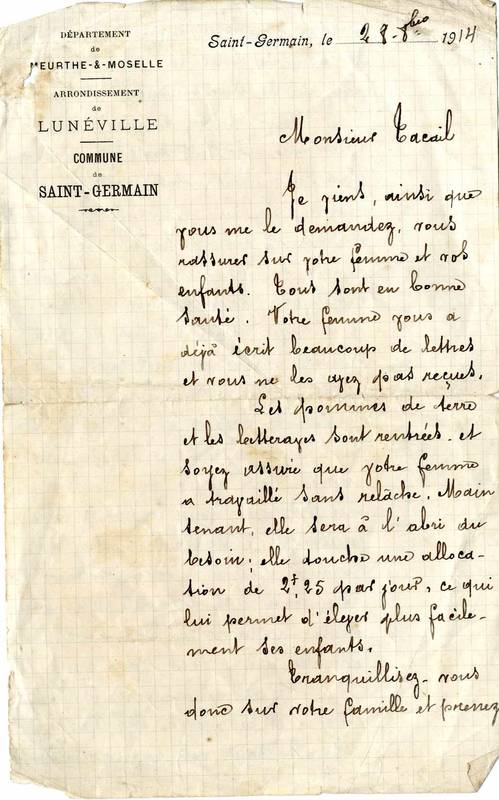 DÉPARTEMENT
de
MEURTHE-&-MOSELLE
ARRONDISSEMENT
de
LUNÉVILLE
COMMUNE
de
SAINT-GERMAIN
Saint-Germain, le 28 - 8bre 1914
Monsieur Tacail
Je viens, ainsi que
vous me le demandez, vous
rassurer sur votre femme et vos
enfants. Tous sont en bonne
santé. Votre femme vous a
déjà écrit beaucoup de lettres
et vous ne les avez pas reçues.
Les pommes de terre
et les betteraves sont rentrées et
soyez assuré que votre femme
a travaillé sans relâche. Main
tenant, elle sera à l'abri du
besoin; elle touche une alloca-
tion de 2f,25 par jour, ce qui
lui permet d'élever plus facile-
ment ses enfants.
Tranquillisez-vous
donc sur votre famille et prenez